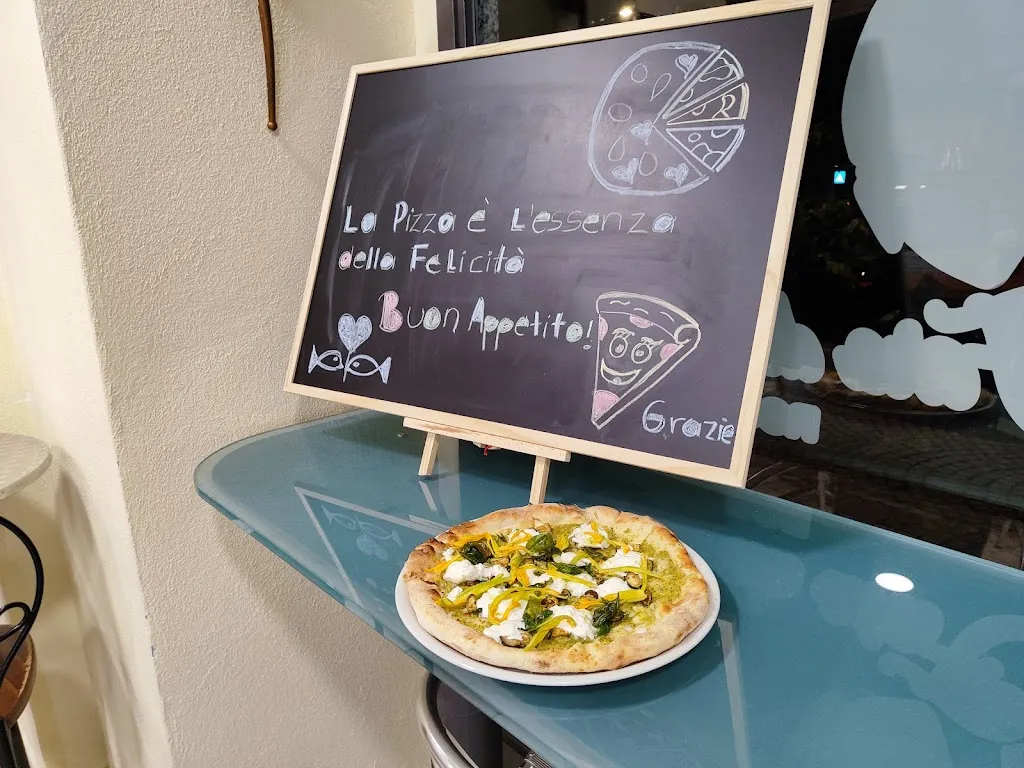 La Pizza è L'essenza
della Felicità
Buon Appetito!
Grazie